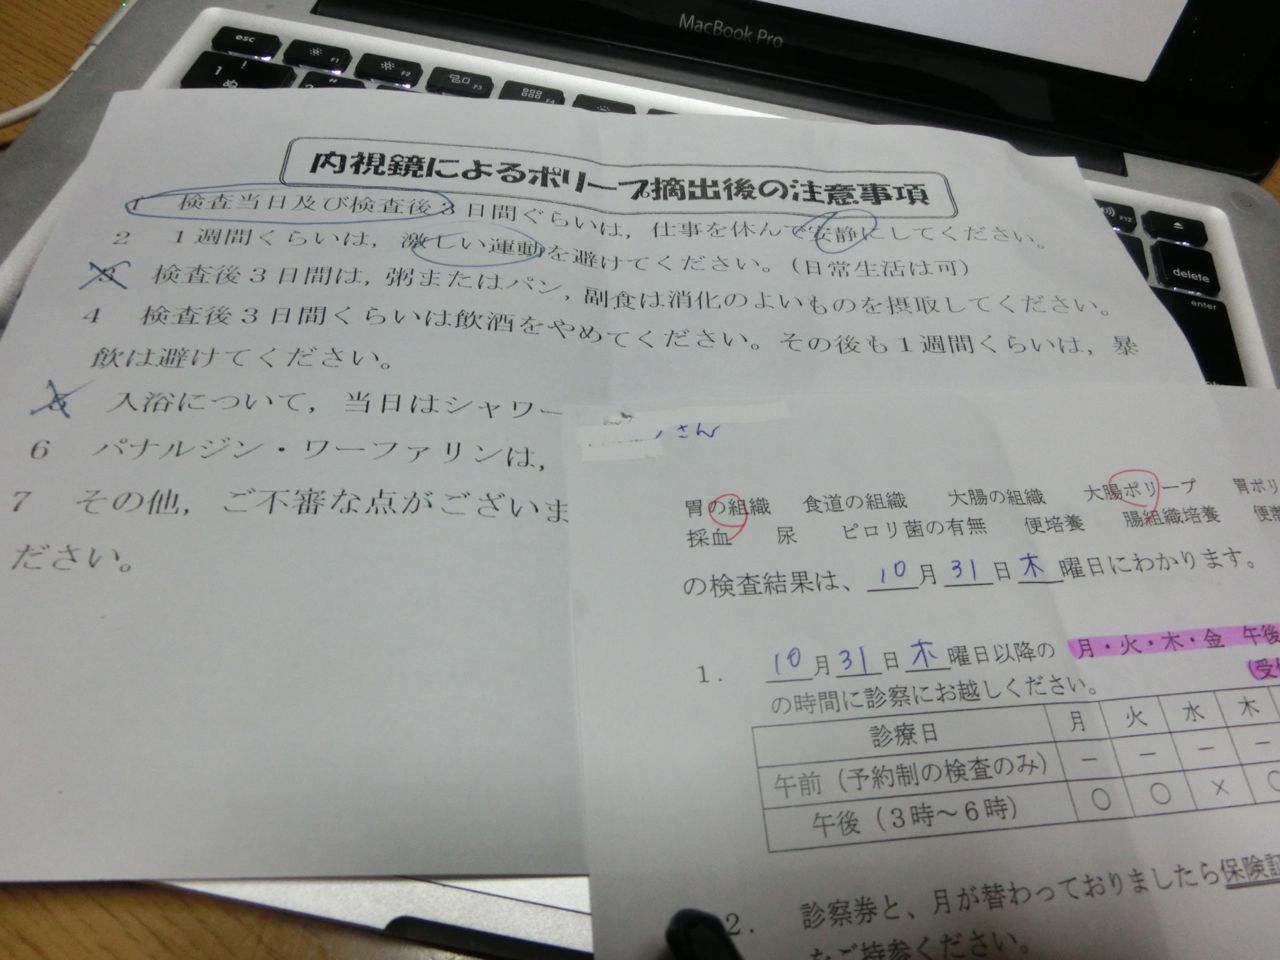 MacBook Pro
esc
F1
F2
F3
F4
F12
delete
enter
内視鏡によるポリープ摘出後の注意事項
1 検査当日及び検査後3日間ぐらいは，仕事を休んで安静にしてください。
2 1週間くらいは，激しい運動を避けてください。（日常生活は可）
3 検査後3日間は，粥またはパン，副食は消化のよいものを摂取してください。
4 検査後3日間くらいは飲酒をやめてください。その後も1週間くらいは，暴
飲は避けてください。
5 入浴について，当日はシャワー
6 パナルジン・ワーファリンは，
7 その他，ご不審な点がございま
ださい。
さん
胃の組織 食道の組織 大腸の組織 大腸ポリープ 胃ポリ
採血 尿 ピロリ菌の有無 便培養 腸組織培養 便
の検査結果は、10月31日木曜日にわかります。
1. 10月31日木曜日以降の 月・火・木・金 午後
の時間に診察にお越しください。
診療日 月 火 水 木
午前（予約制の検査のみ） － － － －
午後（3時～6時） ○ ○ × ○
2. 診察券と、月が替わっておりましたら保険証
をご持参ください。